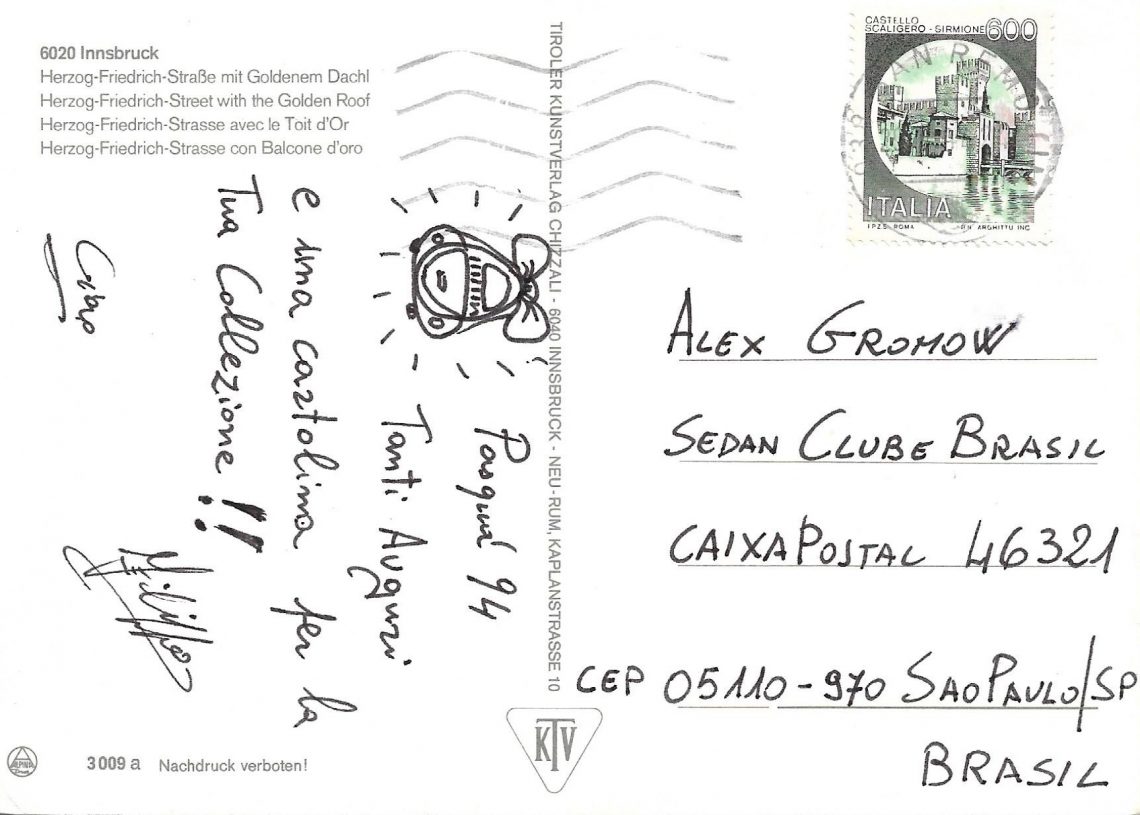 6020 Innsbruck
Herzog-Friedrich-Straße mit Goldenem Dachl
Herzog-Friedrich-Street with the Golden Roof
Herzog-Friedrich-Strasse avec le Toit d'Or
Herzog-Friedrich-Strasse con Balcone d'oro
Pasqua' 94
Tanti Auguri
e una cartolina per la
Tua Collezione!!
Ciao
TIROLER KUNSTVERLAG CHIZZALI - 6040 INNSBRUCK - NEU-RUM, KAPLANSTRASSE 10
CASTELLO
SCALIGERO - SIRMIONE 600
ITALIA
I.P.Z.S. ROMA
ALEX GROMOW
SEDAN CLUBE BRASIL
CAIXA POSTAL 46321
CEP 05110-970 SAO PAULO/SP
BRASIL
KTV
ALPINA
3009 a Nachdruck verboten!